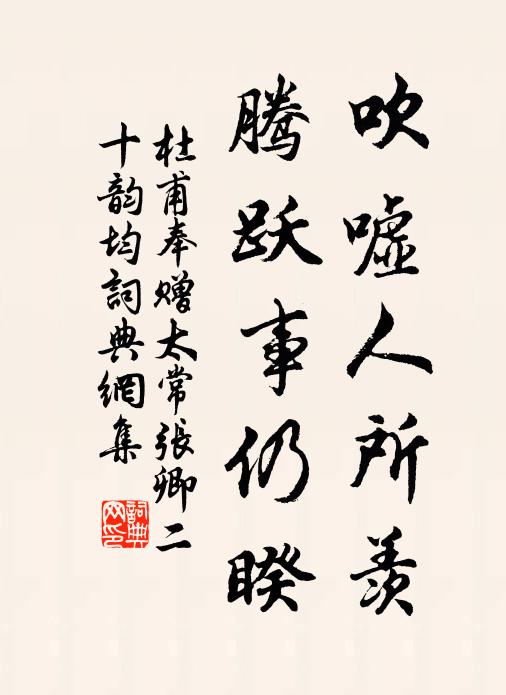 吹噓人所羨
腾跃事仍睽
杜甫奉赠太常張卿二
十韵均詞典網集
詞典
网印